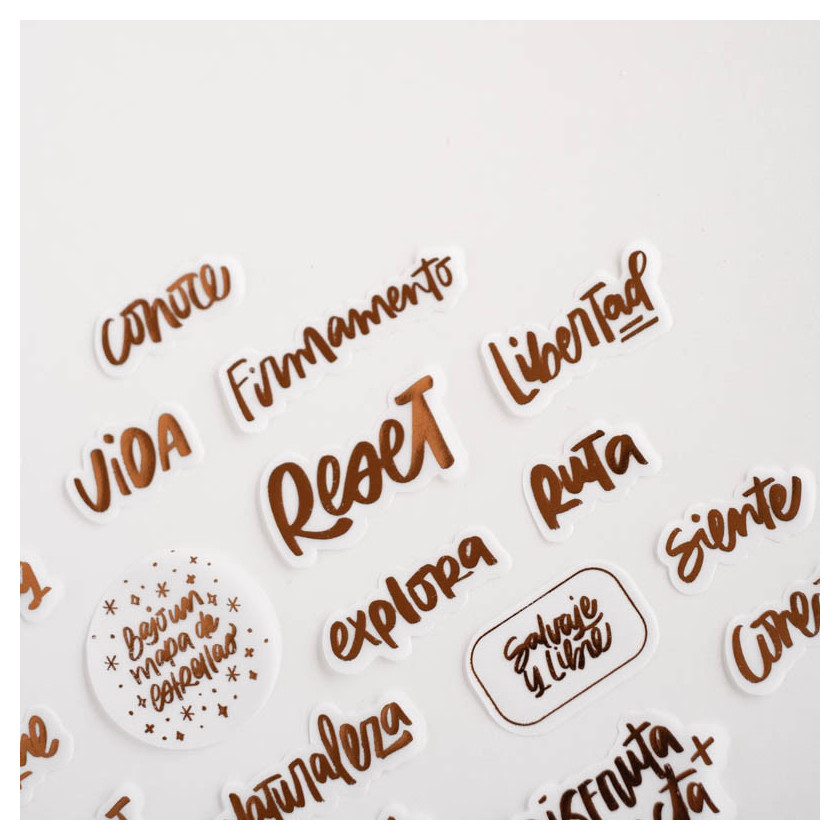 conoce
Firmamento
Libertad
ViDA
Reset
Ruta
siente
explora
Bajo un
mapa de
estrellas
Salvaje
y Libre
Naturaleza
DISFRUTA